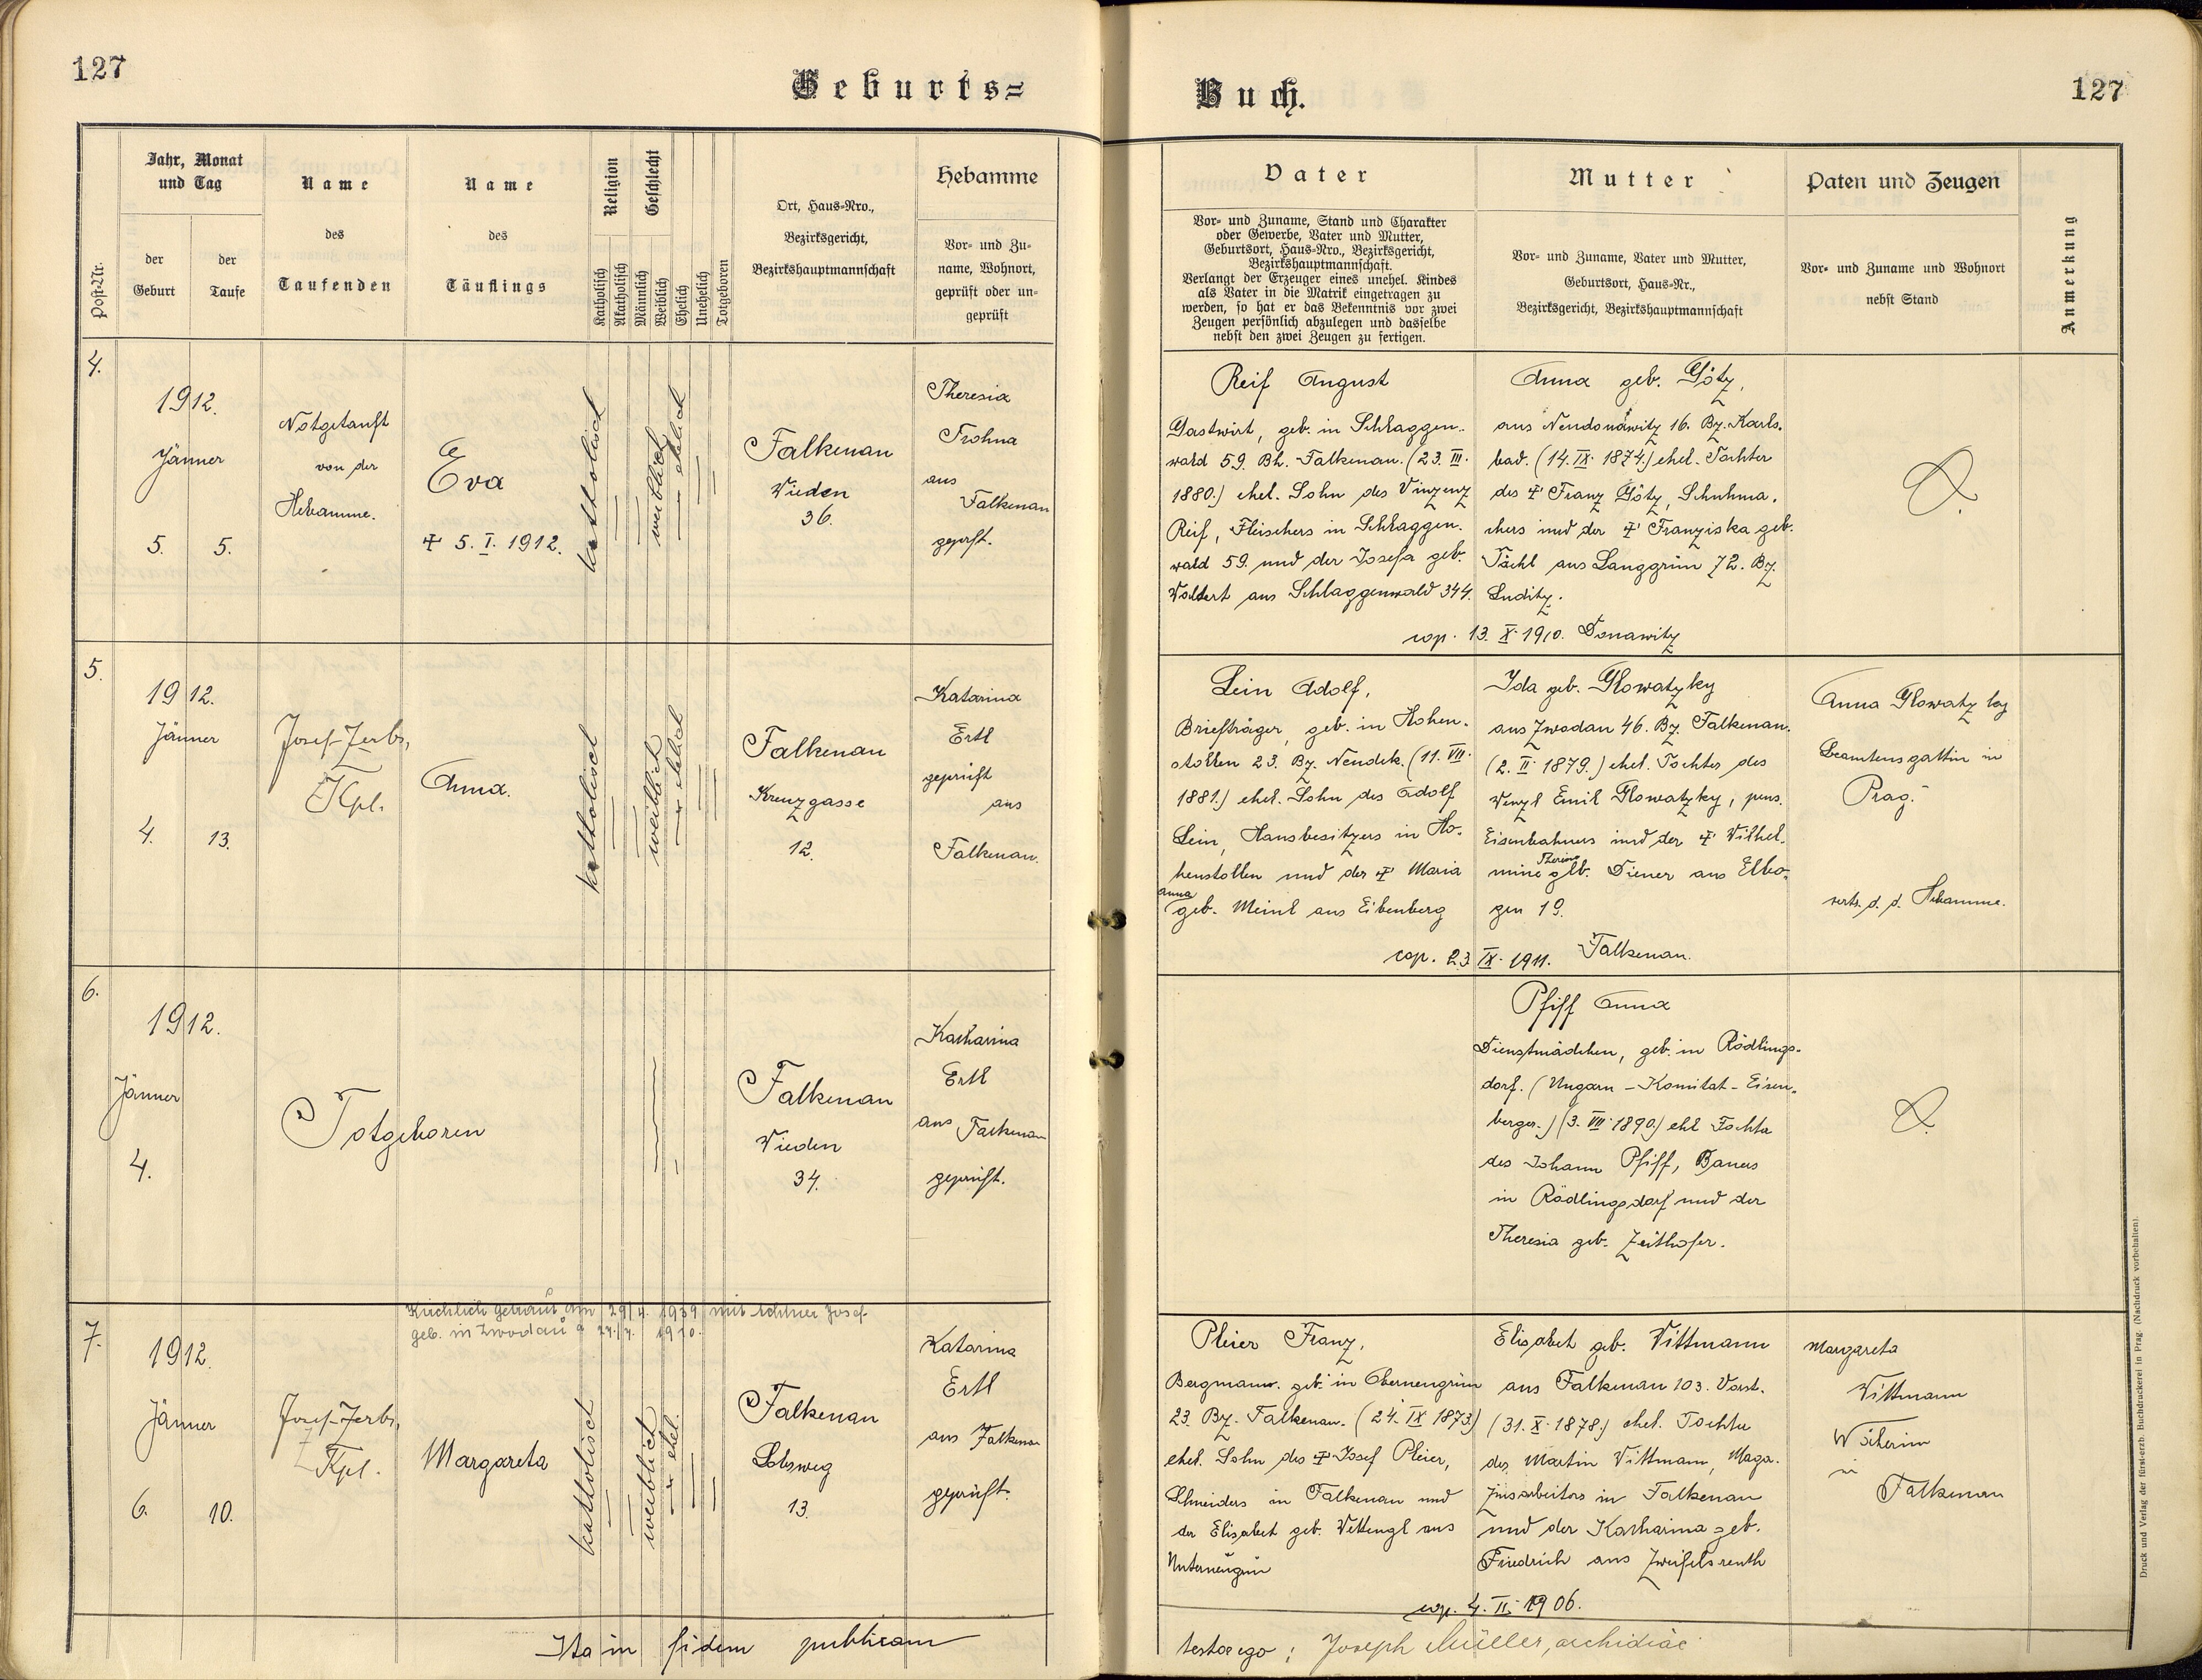 127
Geburts=
Jahr, Monat
und Tag
Name
Name
Religion
Geschlecht
Hebamme
Post-Nr.
der
Geburt
der
Taufe
des
Taufenden
des
Täuflings
Katholisch
Akatholisch
Männlich
Weiblich
Ehelich
Unehelich
Totgeboren
Ort, Haus-Nro.,
Bezirksgericht,
Bezirkshauptmannschaft
Vor- und Zu-
name, Wohnort,
geprüft oder un-
geprüft
4.
1912.
Jänner
5. 5.
Notgetauft
von der
Hebamme.
Eva
† 5. I. 1912.
katholisch
weiblich
ehelich
Falkenau
Wieden
36.
Theresia
Trohna
aus
Falkenau
geprft.
5.
1912.
Jänner
4. 13.
Josef Zerbs,
Kpl.
Anna.
katholisch
weiblich
ehelich
Falkenau
Kreuzgasse
12.
Katarina
Ertl
geprüft
aus
Falkenau.
6.
1912.
Jänner
4.
Totgeboren
Falkenau
Wieden
34.
Katharina
Ertl
aus Falkenau
geprüft.
Kirchlich getraut am 29/4. 1939 mit Lehner Josef
geb. in Zwodau 1910.
7.
1912.
Jänner
6. 10.
Josef Zerbs,
Kpl.
Margareta
katholisch
weiblich
ehel.
Falkenau
Lobsweg
13.
Katarina
Ertl
aus Falkenau
geprüft.
Ita in fidem publicam
Buch.
127
Vater
Mutter
Paten und Zeugen
Anmerkung
Vor- und Zuname, Stand und Charakter
oder Gewerbe, Vater und Mutter,
Geburtsort, Haus-Nro., Bezirksgericht,
Bezirkshauptmannschaft.
Verlangt der Erzeuger eines unehel. Kindes
als Vater in die Matrik eingetragen zu
werden, so hat er das Bekenntnis vor zwei
Zeugen persönlich abzulegen und dasselbe
nebst den zwei Zeugen zu fertigen.
Vor- und Zuname, Vater und Mutter,
Geburtsort, Haus-Nr.,
Bezirksgericht, Bezirkshauptmannschaft
Vor- und Zuname und Wohnort
nebst Stand
Reif August
Gastwirt, geb. in Schlaggen-
wald 59. Bh. Falkenau. (23. III.
1880.) ehel. Sohn des Vinzenz
Reif, Fleischers in Schlaggen-
wald 59. und der Josefa geb.
aus Schlaggenwald 344.
Anna geb. Götz,
aus Neudonawitz 16. Bz. Karls-
bad. (14. IX. 1874.) ehel. Tochter
des † Franz Götz, Schuhma-
chers und der † Franziska geb.
Tächl aus Langgrün 72. Bz.
Luditz.
cop. 13. X. 1910. Donawitz
Lein Adolf,
Briefträger, geb. in Hohen-
stollen 23. Bz. Neudek. (11. VII.
1881.) ehel. Sohn des Adolf
Lein, Hausbesitzers in Ho-
henstollen und der † Maria
Anna
geb. Meinl aus Eibenberg
Ida geb. Glowatzky
aus Zwodau 46. Bz. Falkenau.
(2. II. 1879.) ehel. Tochter des
Wenzl Emil Glowatzky, pens.
Eisenbahners und der † Wilhel-
mine geb. Diener aus Elbo-
gen 19.
cop. 23. IX. 1911. Falkenau.
Anna Glowatzky
Beamtensgattin in
Prag.
vertr. d. d. Hebamme.
Pfiff Anna
Dienstmädchen, geb. in Rödlings-
dorf. (Ungarn - Komitat - Eisen-
berger.) (3. VIII. 1890.) ehel Tochter
des Johann Pfiff, Bauers
in Rödlingsdorf und der
Theresia geb. Zeithofer.
Pleier Franz,
Bergmann. geb. in Oberneugrün
23. Bz. Falkenau. (24. IX 1873)
ehel. Sohn des † Josef Pleier,
Schneiders in Falkenau und
der Elisabet geb. Wettengl aus
Unterneugrün
Elisabet geb. Wittmann
aus Falkenau 103. Vorst.
(31. X. 1878.) ehel. Tochter
des Martin Wittmann, Maga-
zinsarbeiters in Falkenau
und der Katharina geb.
Friedrich aus Zweifelsreuth
cop. 4. II. 1906.
Margareta
Wittmann
in
Falkenau
testor ego: Joseph Müller, archidiac
Druck und Verlag der fürst-erzb. Buchdruckerei in Prag. (Nachdruck vorbehalten).